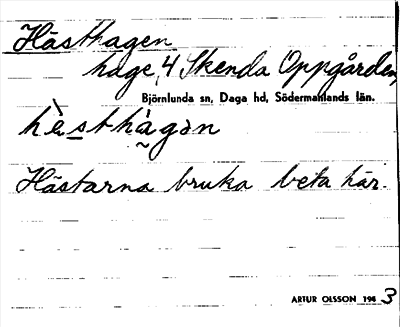 Hästhagen
hage, 4 Skenda Oppgården,
Björnlunda sn, Daga hd, Södermanlands län.
hὲsthàgən
Hästarna bruka beta här.
ARTUR OLSSON 1963